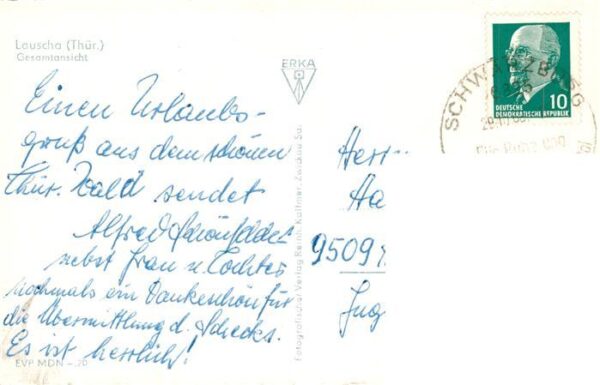 Lauscha (Thür.)
Gesamtansicht
ERKA
Einen Urlaubs-
gruß aus dem schönen
Thür. Wald sendet
Alfred Schönfelder
nebst Frau u. Tochter
nochmals ein Dankeschön für
die Übermittlung d. Schecks.
Es ist herrlich!
EVP MDN -.20
Fotografischer Verlag Reinh. Kallmer, Zwickau Sa.
DEUTSCHE
DEMOKRATISCHE REPUBLIK
10
SCHWARZBURG
Herr
Ha
9509
Ing